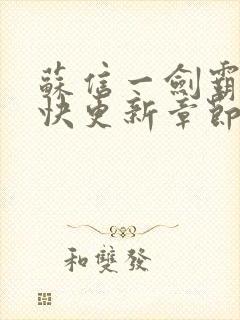 蘇信一劍霸
快更新章節
和雙發